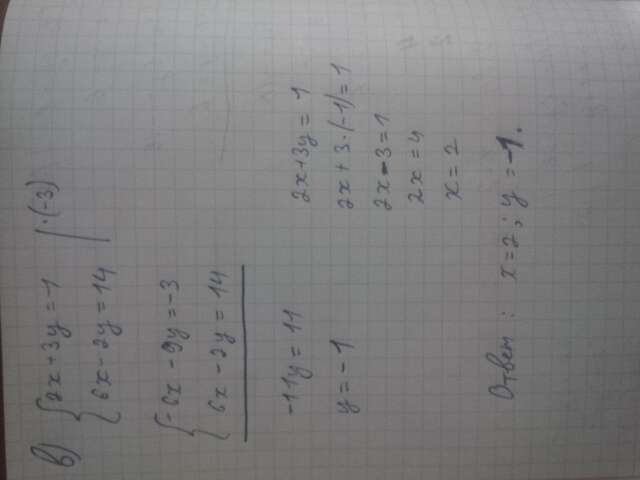 в) { 2x + 3y = 1 | · (-3)
{ 6x - 2y = 14
{ -6x - 9y = -3
{ 6x - 2y = 14
-11y = 11
y = -1
2x + 3y = 1
2x + 3 · (-1) = 1
2x - 3 = 1
2x = 4
x = 2
Ответ : x = 2 ; y = -1.